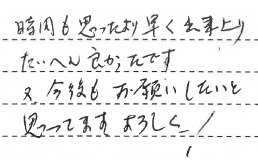 時間も思ったより早く出来上り
たいへん良かったです
又、今後もお願いしたいと
思ってます よろしく!